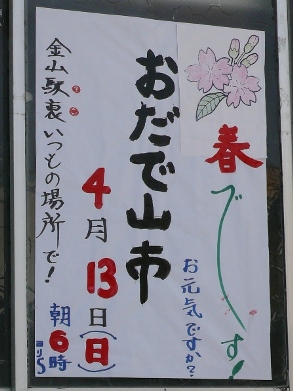 春です!
お元気ですか?
おだで山市
4月13日(日)
朝6時
金山駅裏いつもの場所で!